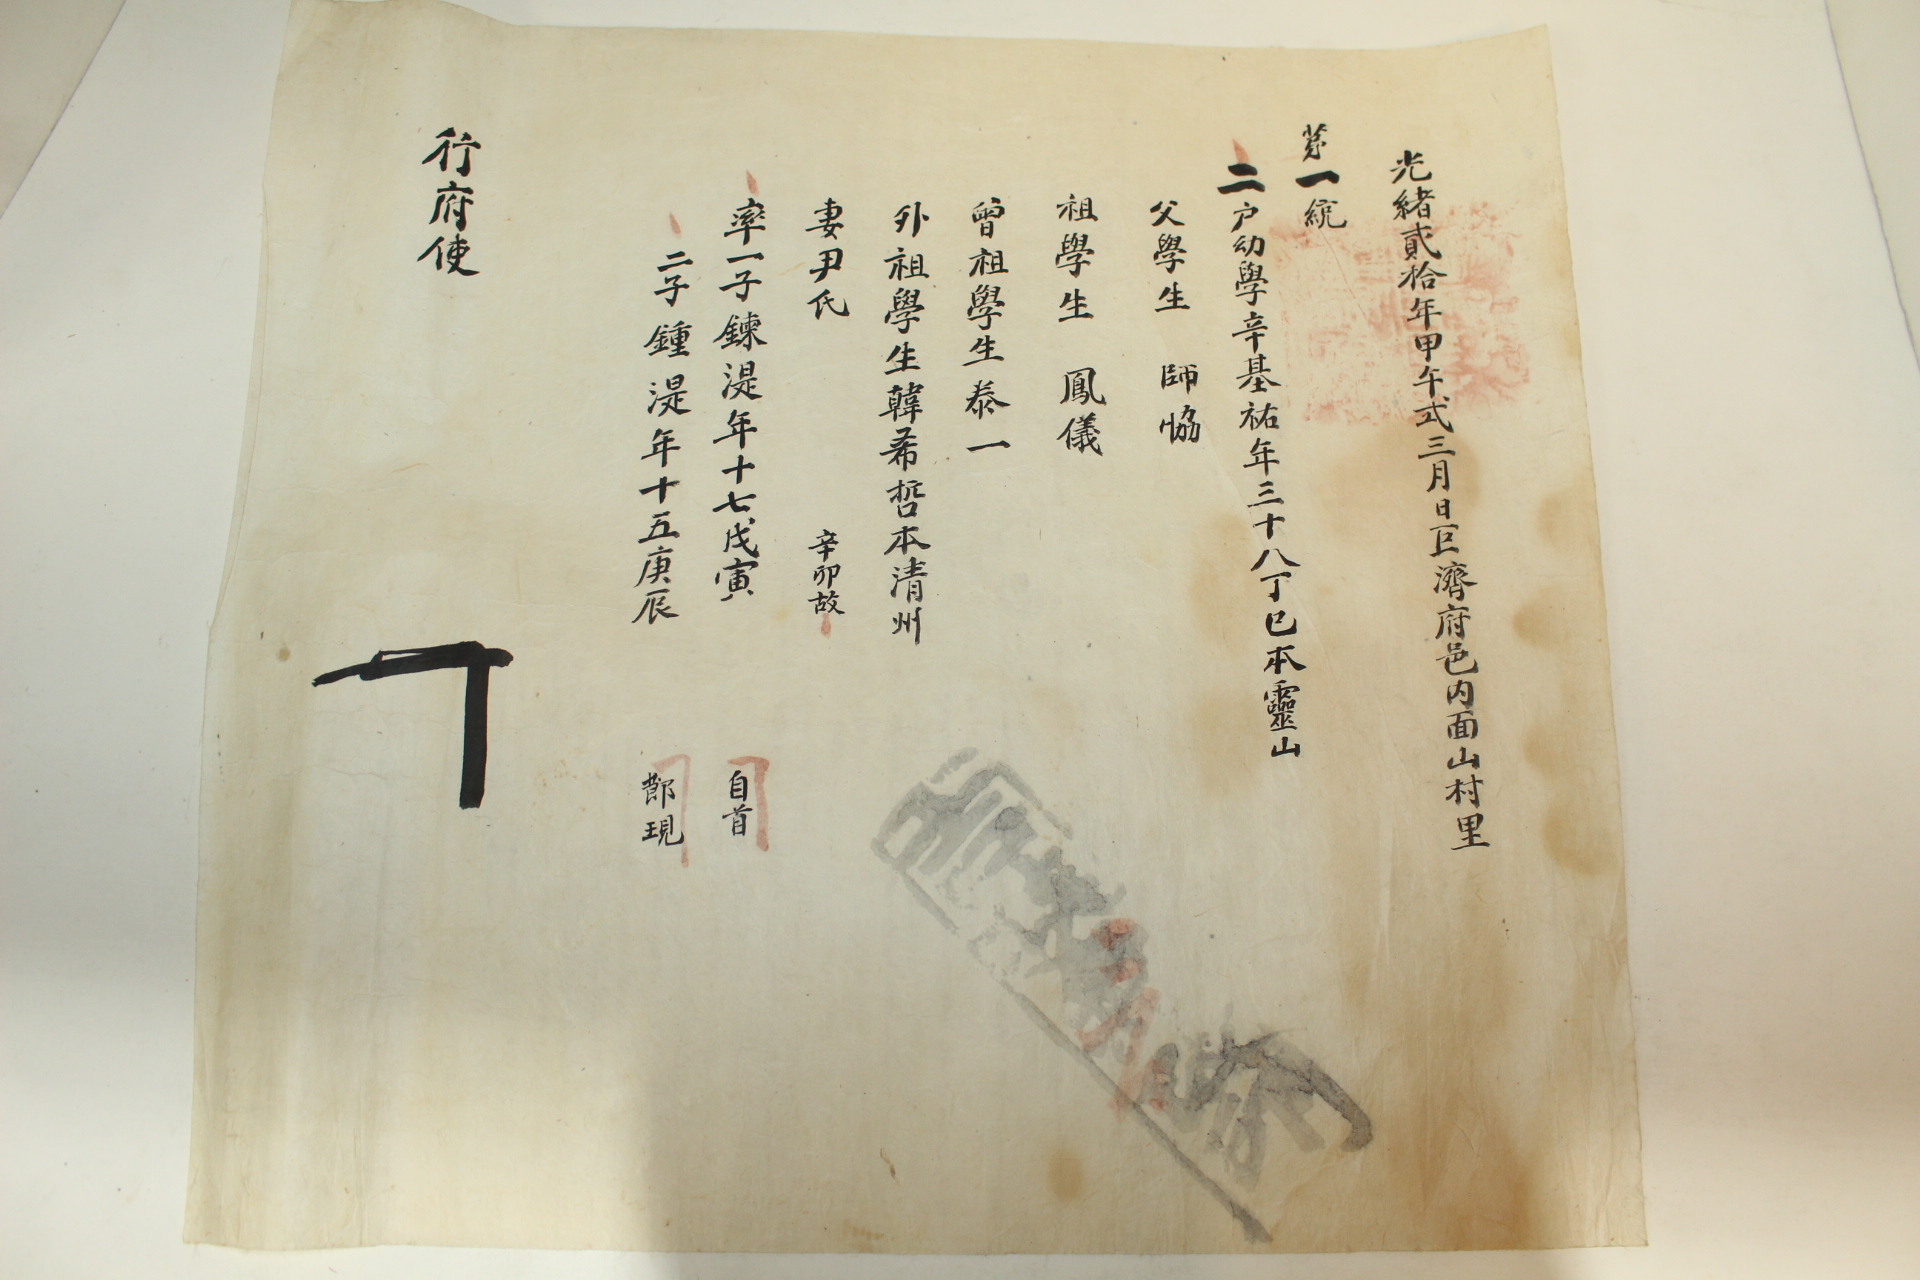 光緒貳拾年甲午式三月日巨濟府邑內面山村里
第一統
二戶幼學辛基祐年三十八丁巳本靈山
父學生 師恊
祖學生 鳳儀
曾祖學生泰一
外祖學生韓希哲本清州
妻尹氏 辛卯故
率一子鍊湜年十七戊寅 自首
二子鍾湜年十五庚辰 節現
行府使